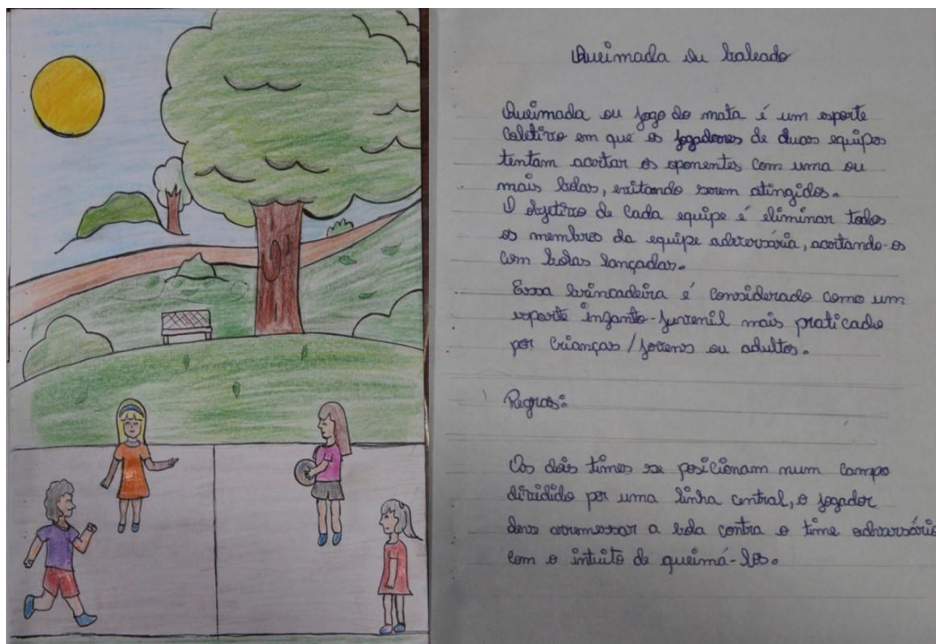 Queimada ou baleado
Queimada ou jogo do mata é um esporte
coletivo em que os jogadores de duas equipes
tentam acertar os oponentes com uma ou
mais bolas, evitando serem atingidos.
O objetivo de cada equipe é eliminar todos
os membros da equipe adversária, acertando-os
com bolas lançadas.
Essa brincadeira é considerado como um
esporte infanto-juvenil mais praticado
por crianças/jovens ou adultos.
Regras:
Os dois times se posicionam num campo
dividido por uma linha central, o jogador
deve arremessar a bola contra o time adversário
com o intuito de queimá-los.